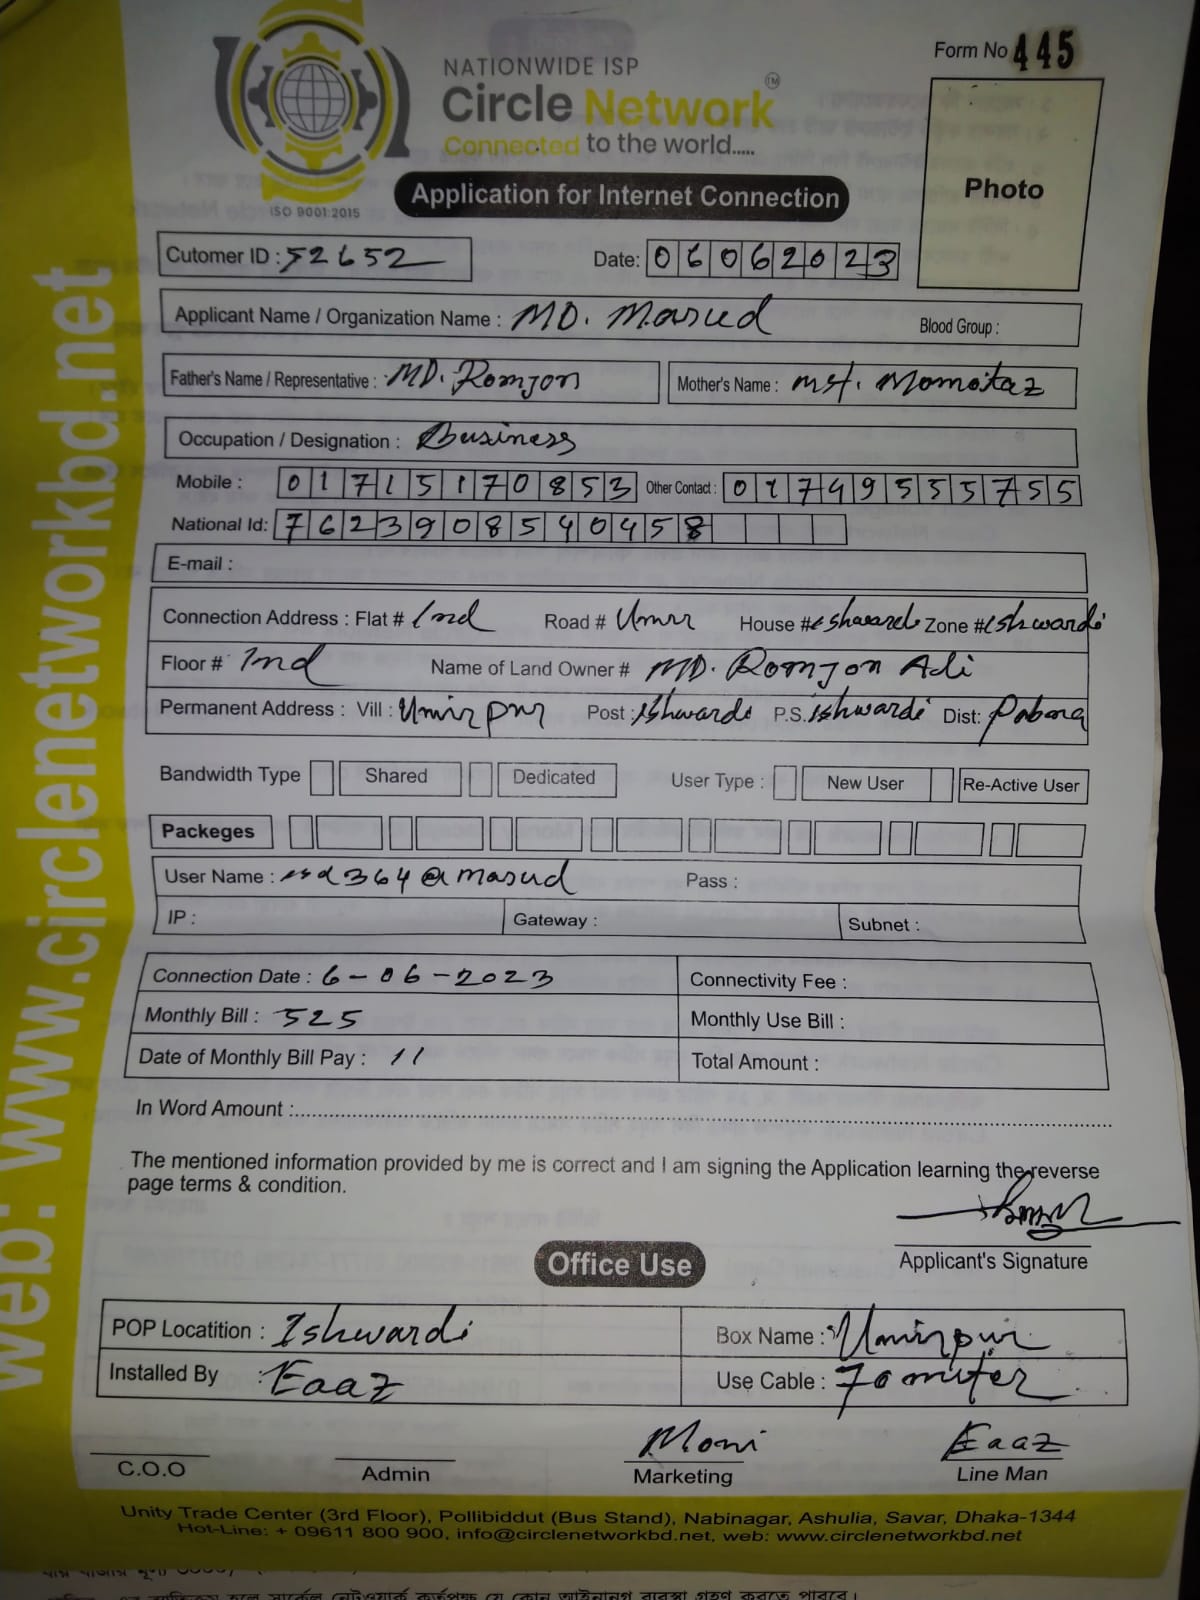 NATIONWIDE ISP
Circle Network TM
Connected to the world.....
ISO 9001:2015
Form No 445
Photo
Application for Internet Connection
Cutomer ID : 52652 Date: 06062023
Applicant Name / Organization Name : MD. Masud Blood Group :
Father's Name / Representative : MD. Romjon Mother's Name : mst. Momotaz
Occupation / Designation : Business
Mobile : 01715170853 Other Contact : 01749555755
National Id: 7623908540458
E-mail :
Connection Address : Flat # Road # House # Zone # ishwardi
Floor # Name of Land Owner # MD. Romjon Ali
Permanent Address : Vill : Umirpur Post : ishwardi P.S. ishwardi Dist: Pabna
Bandwidth Type Shared Dedicated User Type : New User Re-Active User
Packeges
User Name : Pass :
IP : Gateway : Subnet :
Connection Date : 6-06-2023 Connectivity Fee :
Monthly Bill : 525 Monthly Use Bill :
Date of Monthly Bill Pay : 11 Total Amount :
In Word Amount :
The mentioned information provided by me is correct and I am signing the Application learning the reverse
page terms & condition.
Applicant's Signature
Office Use
POP Locatition : Ishwardi Box Name : Umirpur
Installed By : Eaaz Use Cable : 70 miter
Moni Eaaz
C.O.O Admin Marketing Line Man
Unity Trade Center (3rd Floor), Pollibiddut (Bus Stand), Nabinagar, Ashulia, Savar, Dhaka-1344
Hot-Line: + 09611 800 900, info@circlenetworkbd.net, web: www.circlenetworkbd.net
web: www.circlenetworkbd.net